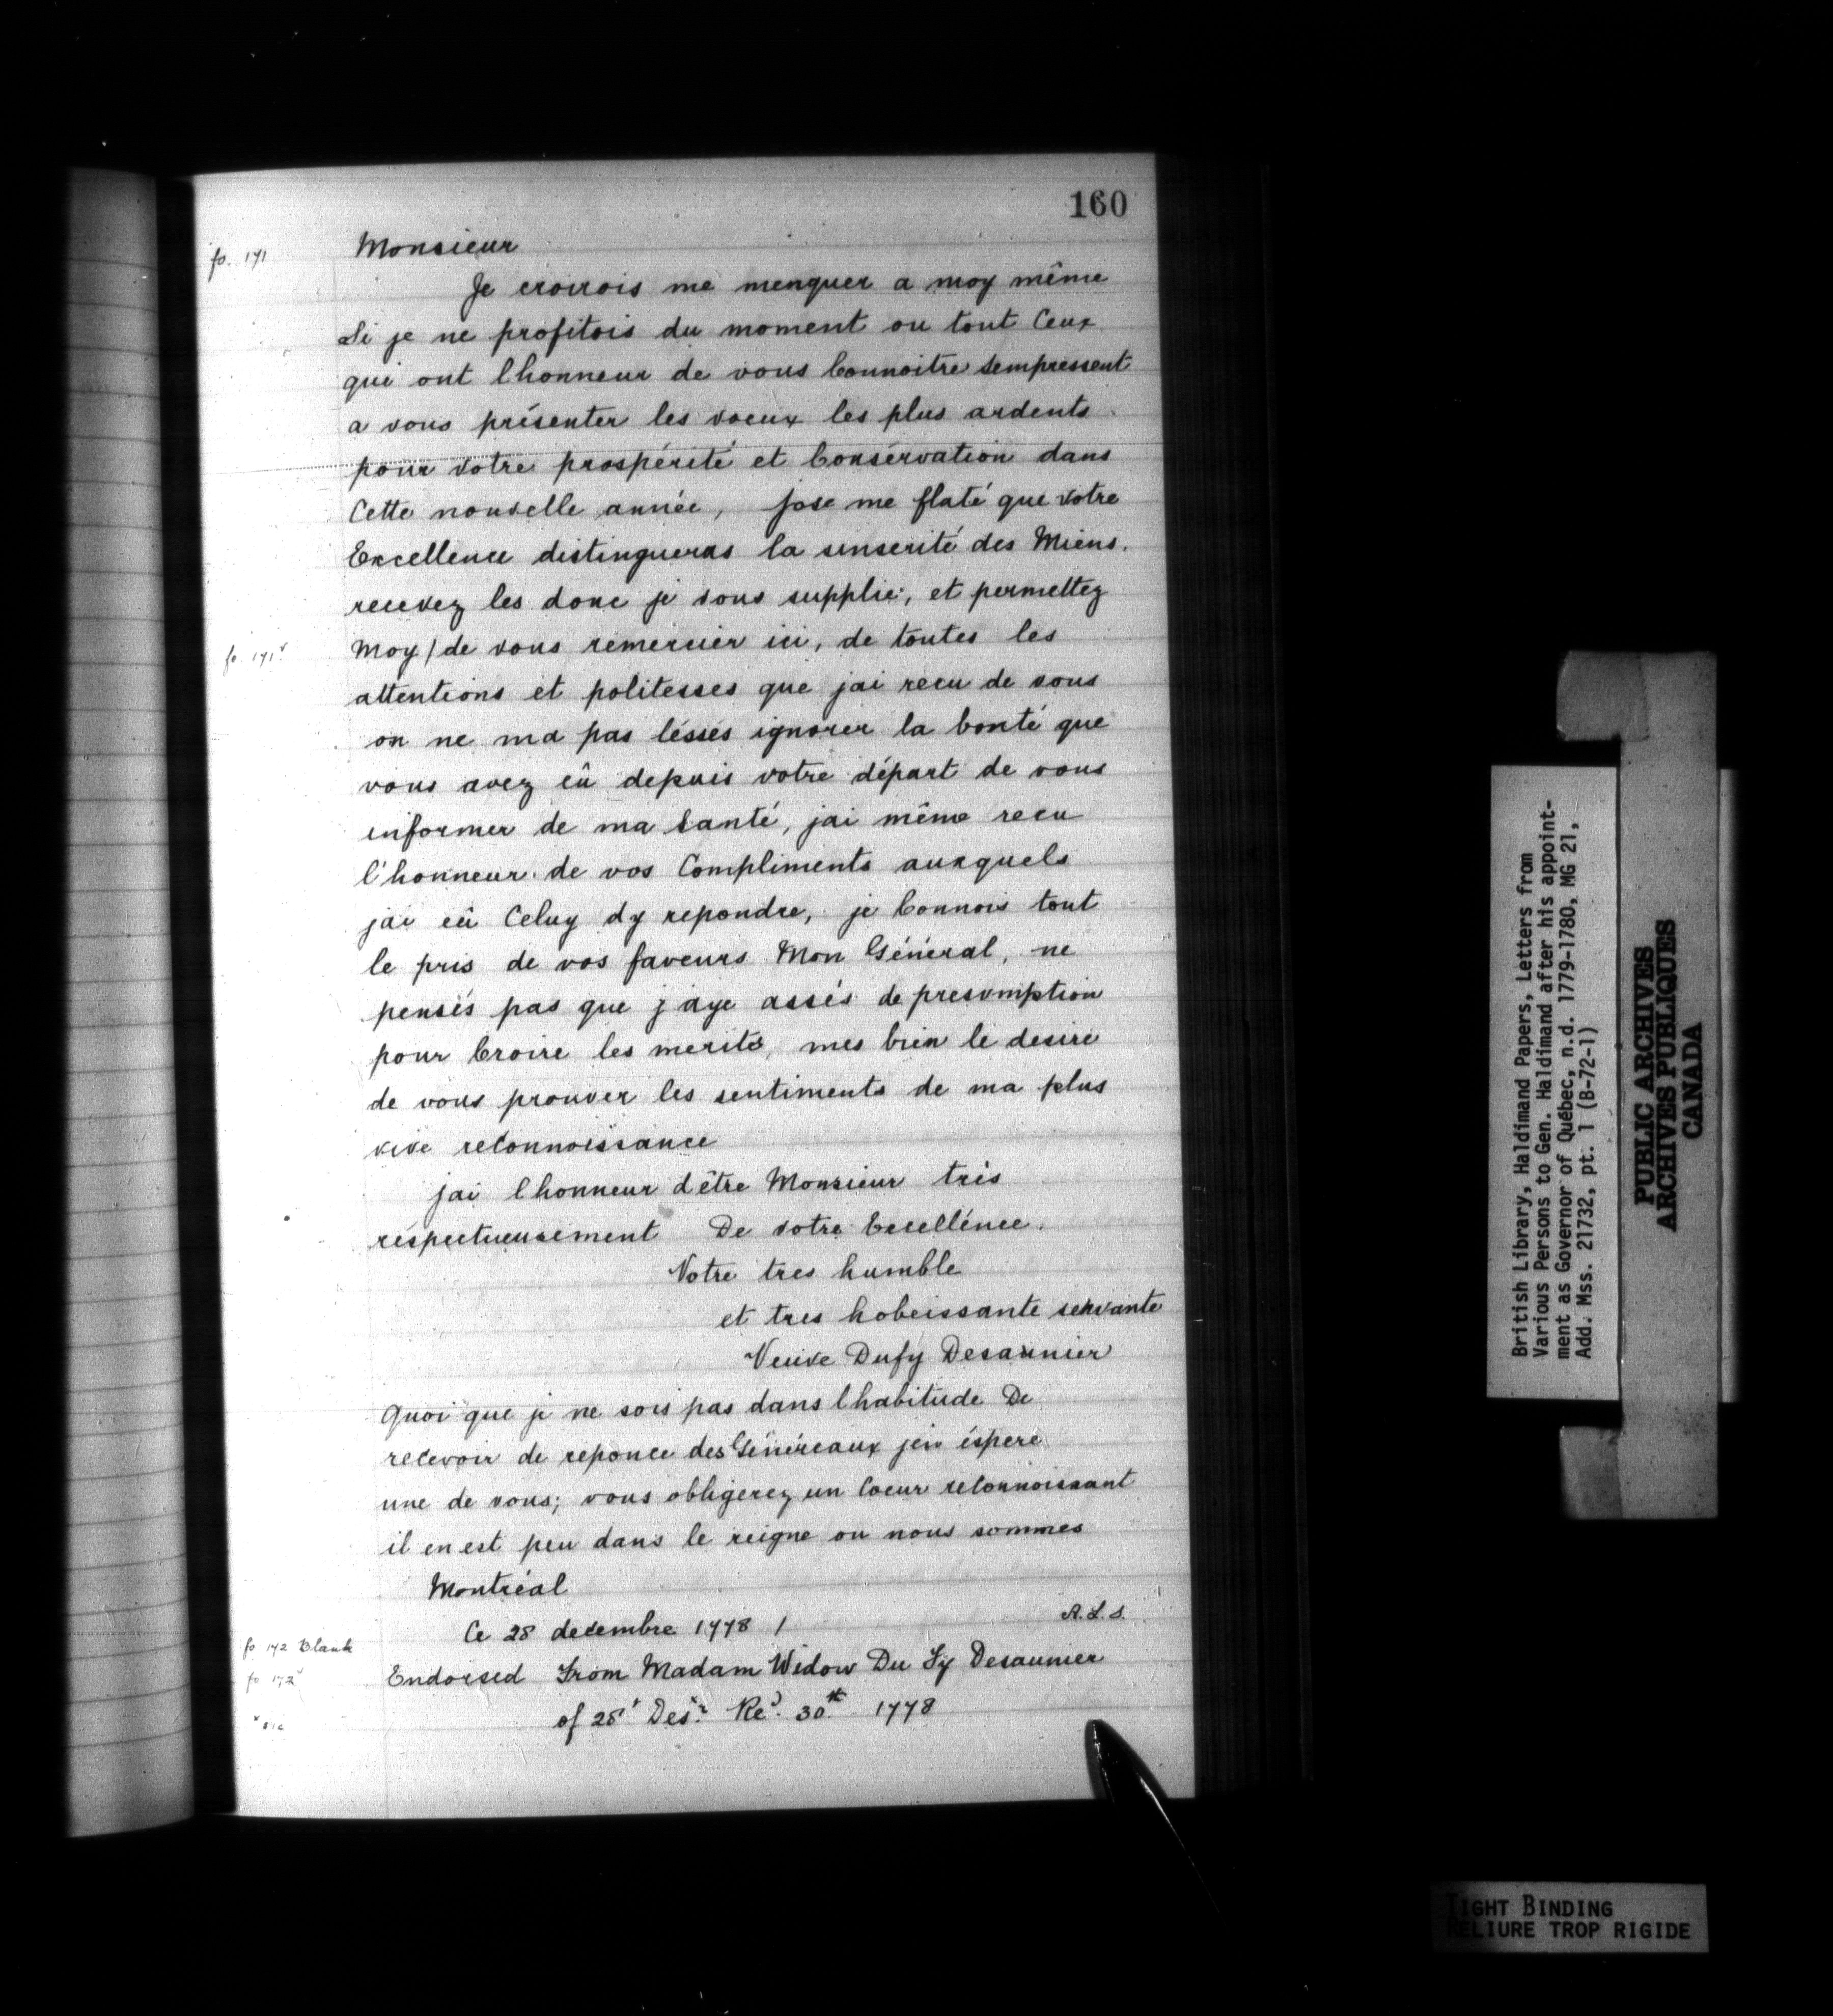 160
fo. 171
Monsieur
Je croirois me menquer a moy même
Si je ne profitois du moment ou tout Ceux
qui ont lhonneur de vous Connoitre sempressent
a vous présenter les voeux les plus ardents
pour votre prospérité et Consérvation dans
Cette nouvelle année, jose me flaté que votre
Excellence distingueras la senserité des Miens.
recevez les donc je vous supplie, et permettez
fo 171v
Moy / de vous remercier ici, de toutes les
attentions et politesses que jai recu de vous
on ne ma pas léssés ignorer la bonté que
vous avez eû depuis votre départ de vous
informer de ma Santé, jai même recu
l'honneur de vos Compliments auxquels
jai eû Celuy dy repondre, je Connois tout
le pris de vos faveurs Mon Général, ne
pensés pas que jaye assés de presomption
pour Croire les merité, mes bien le desire
de vous prouver les sentiments de ma plus
vive reconnoissance
jai lhonneur dêtre Monsieur très
réspectueusement De votre Excellénce.
Votre tres humble
et tres hobeissante servante
Veuve Dufy Desaunier
Quoi que je ne sois pas dans lhabitude De
recevoir de reponce des Généreaux jen éspere
une de vous; vous obligerez un Coeur reconnoissant
il en est peu dans le reigne ou nous sommes
Montréal
Ce 28 decembre 1778 /
A.L.S.
fo 172 Blank
fo 172v
Endorsed From Madam Widow Du Fy Desaunier
of 28t Desx.r Red. 30.st 1778
x sic
British Library, Haldimand Papers, Letters from
Various Persons to Gen. Haldimand after his appoint-
ment as Governor of Québec, n.d. 1779-1780, MG 21,
Add. Mss. 21732, pt. 1 (B-72-1)
PUBLIC ARCHIVES
ARCHIVES PUBLIQUES
CANADA
TIGHT BINDING
RELIURE TROP RIGIDE